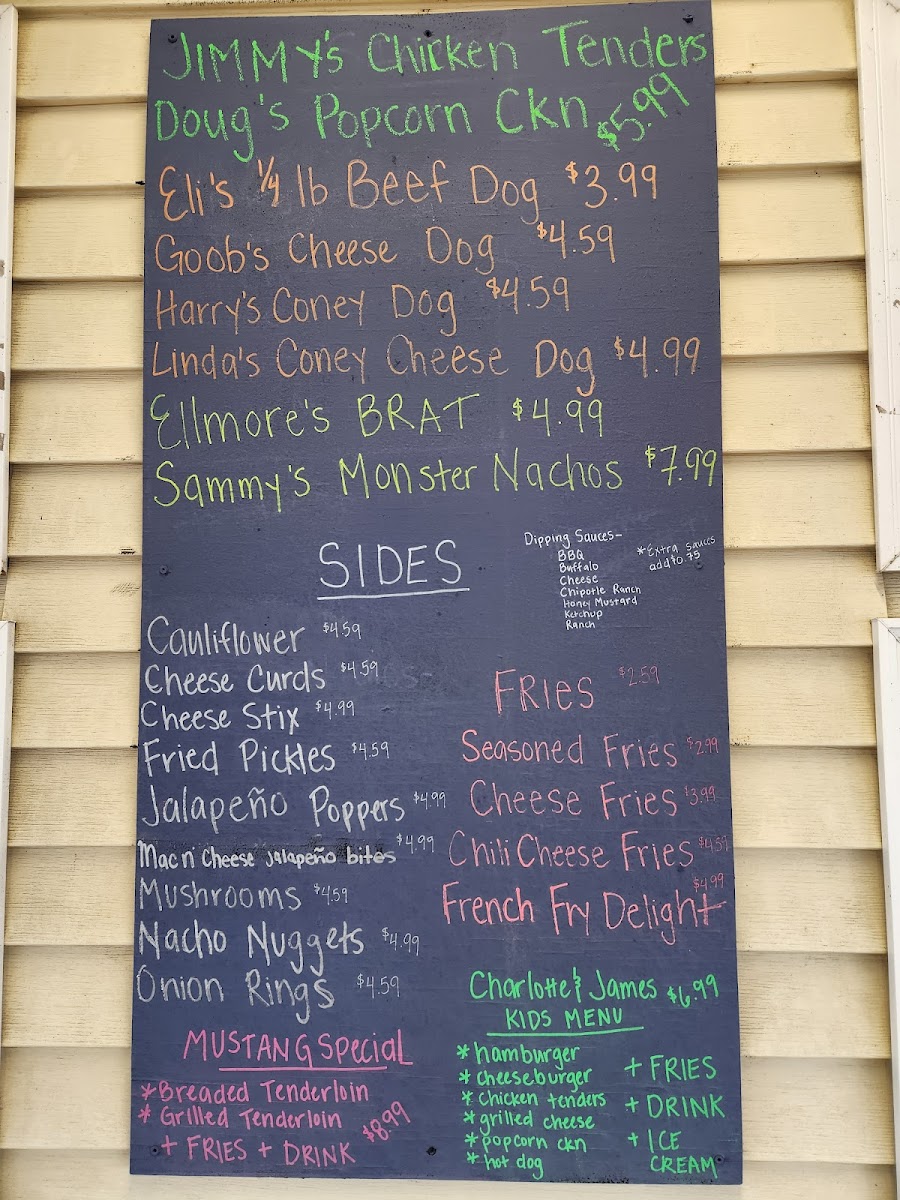 JIMMY's Chicken Tenders
Doug's Popcorn Ckn $5.99
Eli's 1/4 lb Beef Dog $3.99
Goob's Cheese Dog $4.59
Harry's Coney Dog $4.59
Linda's Coney Cheese Dog $4.99
Ellmore's BRAT $4.99
Sammy's Monster Nachos $7.99
SIDES
Dipping Sauces-
BBQ
Buffalo
Cheese
Chipotle Ranch
Honey Mustard
Ketchup
Ranch
*Extra sauces
add $0.75
Cauliflower $4.59
Cheese Curds $4.59
Cheese Stix $4.99
Fried Pickles $4.59
Jalapeño Poppers $4.99
Mac n' Cheese Jalapeño bites $4.99
Mushrooms $4.59
Nacho Nuggets $4.99
Onion Rings $4.59
FRIES $2.59
Seasoned Fries $2.99
Cheese Fries $3.99
Chili Cheese Fries $4.59
French Fry Delight $4.99
MUSTANG Special
*Breaded Tenderloin
*Grilled Tenderloin
+ FRIES + DRINK $8.99
Charlotte & James $6.99
KIDS MENU
*hamburger
*cheeseburger
*chicken tenders
*grilled cheese
*popcorn ckn
*hot dog
+ FRIES
+ DRINK
+ ICE
CREAM